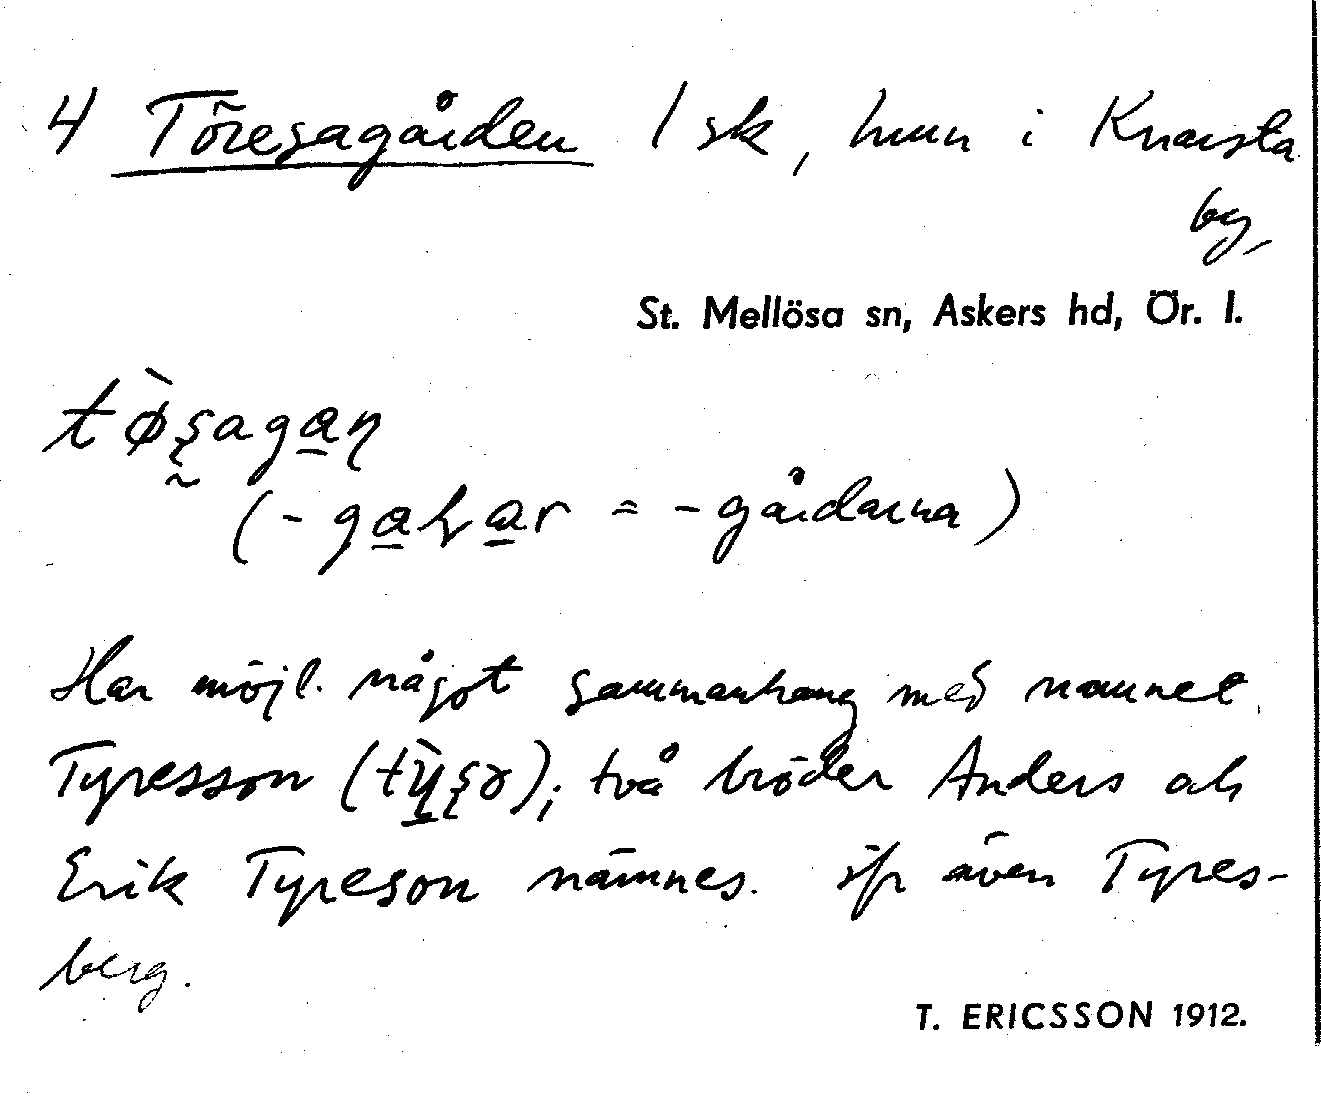 4 Töresagården 1 sk, hmn i Knarsta
by,
St. Mellösa sn, Askers hd, Ör. l.
(- = -gårdarna)
Har möjl. något sammanhang med namnet
Tyresson två bröder Anders och
Erik Tyreson nämnes. jfr även Tyres-
berg.
T. ERICSSON 1912.